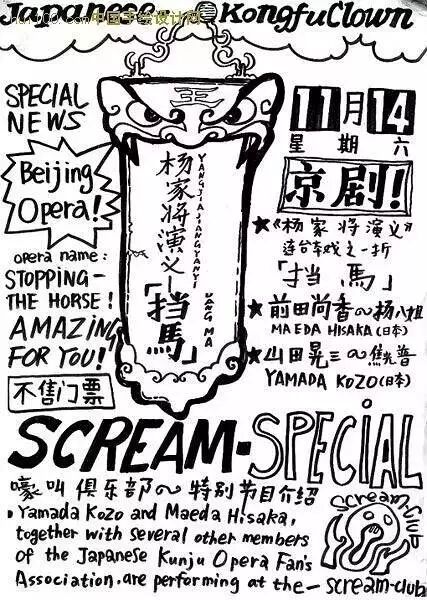 Japanese KongfuClown
SPECIAL
NEWS
Beijing
Opera!
opera name:
STOPPING-
THE HORSE!
AMAZING
FOR YOU!
不售门票
王
杨家将演义—
「挡馬」
YANGJIAJIANGYANYI
DANG MA
11月14
星期六
京剧!
★《杨家将演义》
连台本戏之一折
「挡馬」
★前田尚香~杨八姐
MAEDA HISAKA(日本)
★山田晃三~焦普
YAMADA KOZO(日本)
SCREAM-SPECIAL
嚎叫俱乐部~特别节目介绍
Scream Club
• Yamada Kozo and Maeda Hisaka,
together with several other members
of the Japanese Kunju Opera Fan's
Association. are performing at the - scream-club